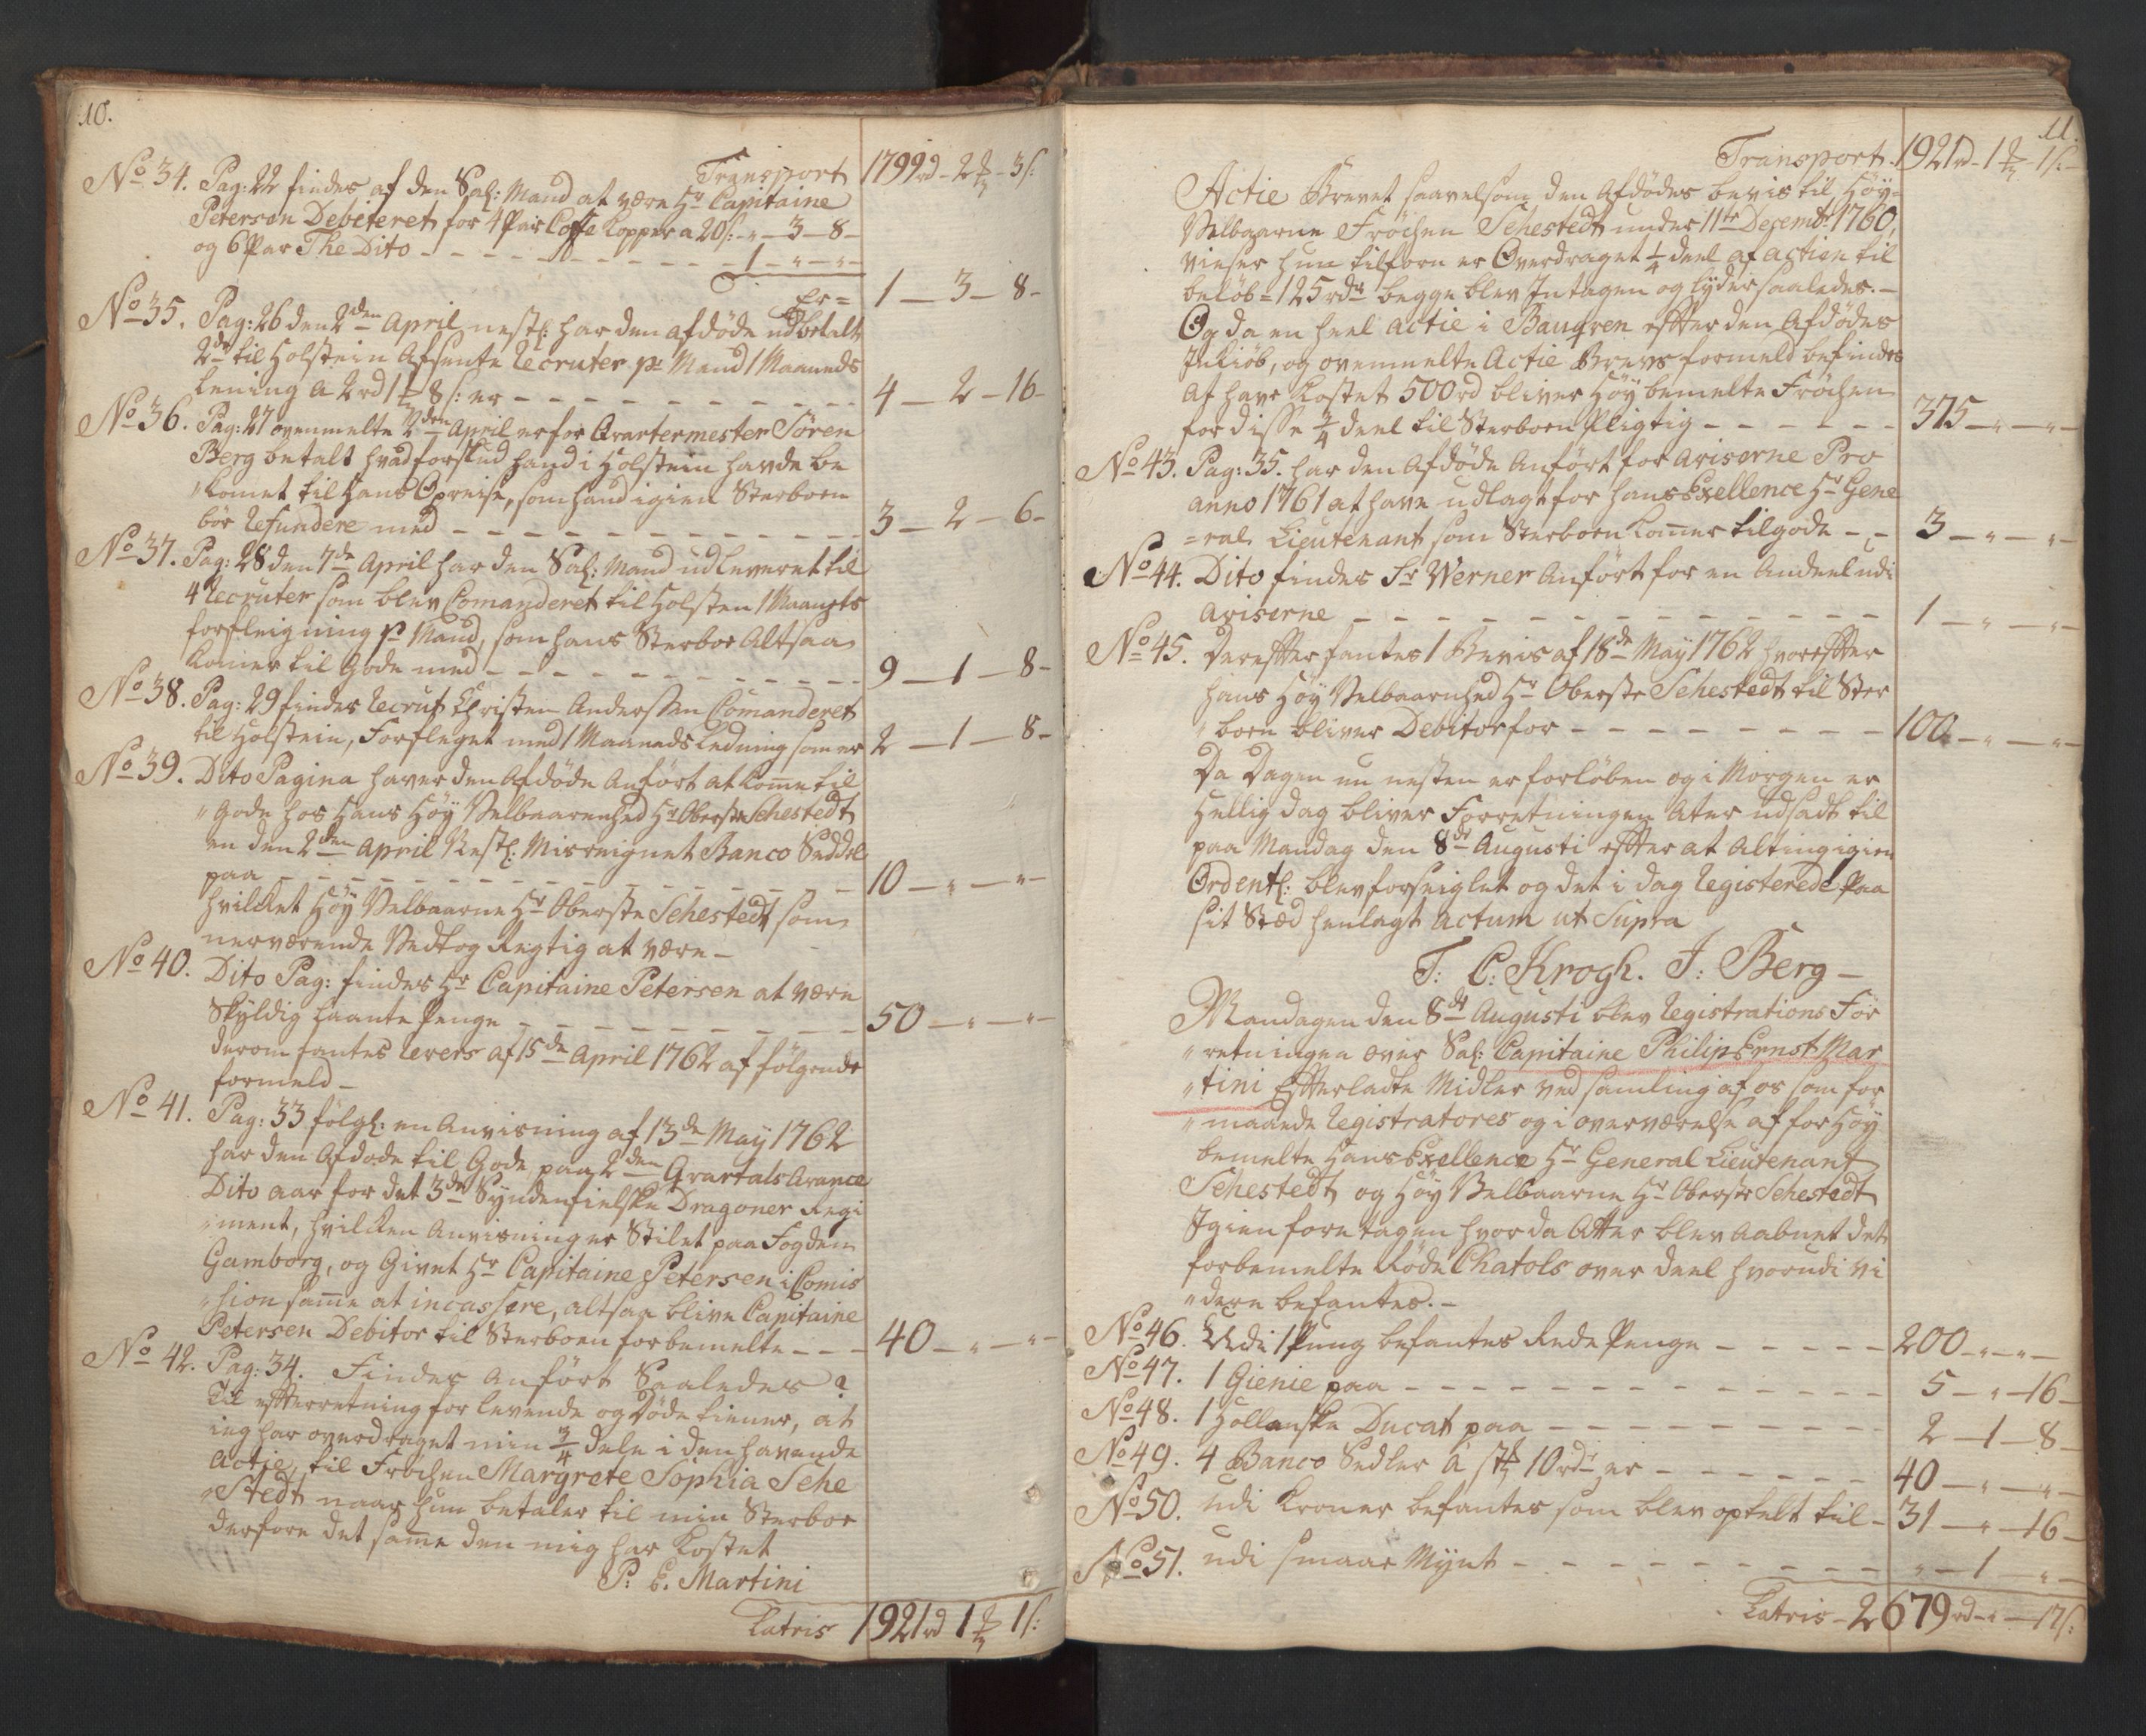 10.
Transport 1799rd - 2 - 3 s:
No 34. Pag: 22 findes af den Sal: Mand at være Hr Capitaine
Petersen Debiteret for 4 Par Coffe Kopper a 20 s: - " - 3 - 8 -
og 6 Par The Dito - - - 1 - " - " -
Er = 1 - 3 - 8 -
No 35. Pag: 26 den 2den April nestl: har den afdöde udbetalt
2de til Holstein Afsente Recruter pr Mand 1 Maaneds
Lening a 2rd 1 8 s: er - - - 4 - 2 - 16 -
No 36. Pag: 27 ovenmelte 2den April er for Qvartermester Sören
Berg betalt hvad forskud hand i Holstein havde be
"komet til hans Opreise, som hand igien Sterboen
bör Refundere med - - - 3 - 2 - 6 -
No 37. Pag: 28 den 7de April har den Sal: Mand udleveret til
4 Recruter som blev Comanderet til Holsten 1 Maanets
forfleigning pr Mand, som hans Sterboe Altsaa
komer til Gode med - - - 9 - 1 - 8 -
No 38. Pag: 29 findes Recrut Christen Anderssen Comanderet
til Holstein, Forfleget med 1 Maaneds Ledning som er 2 - 1 - 8 -
No 39. Dito Pagina haver den Afdöde Anfört at kome til
"Gode hos Hans Höy Velbaarenhed Hr Oberste Sehestedt
en den 2den April Nestl: Misreignet Banco Seddel
paa - - - 10 - " - " -
hvilket Höy Velbaarne Hr Oberste Sehestedt som
nerværende Vedtog Rigtig at være -
No 40. Dito Pag: findes Hr Capitaine Petersen at være
Skyldig laante Penge - - - 50 - " - " -
derom fantes Revers af 15de April 1762 af fölgende
formeld -
No 41. Pag: 33 fölgl: en Anvisning af 13de May 1762
har den Afdøde til Gode paa 2den Qvartals Avance
Dito aar for det 3de Syndenfielske Dragoner Regi
"ment, hvilken Anvisning er Stilet paa Fogden
Gamborg, og Givet Hr Capitaine Petersen i Comis
"sion same at incassere, altsaa blive Capitaine
Petersen Debitor til Sterboen for bemelte - - - 40 - " - " -
No 42. Pag: 34. Findes Anfört Saaledes ?
Til efterretning for levende og Döde tiener, at
ieg har overdraget min 3/4 dele i den havende
Actie, til Fröchen Margrete Sophia Sehe
"stedt naar hun betaler til min Sterboe
derfore det same den mig har kostet
P: E. Martini
Latris 1921rd 1 1 s:
11.
Transport. 1921rd - 1 - 1 s: -
Actie Brevet saavelsom den Afdödes bevis til Höy=
Velbaarne Fröchen Sehestedt under 11te Decembr 1760,
viiser hun tilforn er Overdraget 1/4 deel af actien til
belöb = 125 rdr begge blev Intagen og lyder saaledes. -
Og da en heel Actie i Baugren efter den Afdödes
Inkiöb, og ovenmelte Actie Brevs formeld befindes
At have kostet 500rd bliver Höybemelte Fröchen
for disse 3/4 deel til Sterboen Pligtig - - - 375 - " - " -
No 43. Pag: 35. har den Afdöde Anfört for Aviserne Pro
anno 1761 at have udlagt for hans Exellence Hr Gene
=ral Lieutenant som Sterboen Komer tilgode - - 3 - " - " -
No 44. Dito findes Sr Werner Anfört for en Andeel udi
Aviserne - - - 1 - " - " -
No 45. Derefter fantes 1 Bevis af 18de May 1762 hvorefter
hans Höy Velbaarnhed Hr Oberste Sehestedt til Ster
"boen bliver Debitor for - - - 100 - " - " -
Da Dagen nu nesten er forlöben og i Morgen er
Hellig dag bliver Forretningen Ater udsadt til
paa Mandag den 8de Augusti efter at Alting igien
Ordentl: blev forseiglet og det i dag Registerede Paa
sit Sted henlagt Actum ut Supra
T: C: Krogh. J: Berg -
Mandagen den 8de Augusti blev Registrations For
"retningen over Sal: Capitaine Philip Ernst Mar
"tini Efterladte Midler ved samling af os som for
"maaende Registratores og i overværelse af for Höy
bemelte Hans Exellence Hr General Lieutenant
Sehestedt og Höy Velbaarne Hr Oberste Sehestedt
Igien foretagen hvor da Atter blev Aabnet det
forbemelte Röde Chatols över deel hvorudi vi
"dere befantes. -
No 46. Udi 1 Pung befantes Rede Penge - - - 200 - " - " -
No 47. 1 Gienie paa - - - 5 - " - 16 -
No 48. 1 Hollanske Ducat paa - - - 2 - 1 - 8 -
No 49. 4 Banco Sedler á stk 10 rdr er - - - 40 - " - " -
No 50. Udi Kroner befantes som blev optelt til - 31 - " - 16 -
No 51. udi smaae Mynt - - - " - 1 - " -
Latris - 2679rd - " - 17 s: